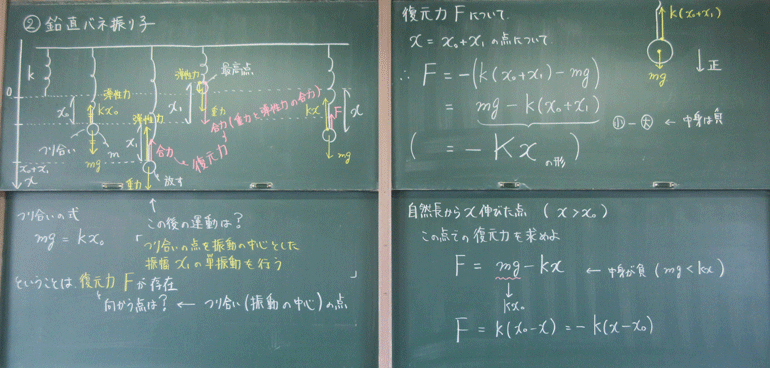 ② 鉛直バネ振り子
k
0
x₀
x₀+x₁
x
つり合い
弾性力
kx₀
mg
m
弾性力
x₁
合力
重力
放す
復元力
弾性力
最高点
x₁
重力
合力(重力と弾性力の合力)
kx
F
x
mg
つり合いの式
mg = kx₀
この後の運動は?
「つり合いの点を振動の中心とした
振幅 x₁ の単振動を行う」
ということは、復元力 F が存在
向かう点は? ← つり合い(振動の中心)の点
復元力 F について
x = x₀+x₁ の点について
∴ F = -(k(x₀+x₁)-mg)
= mg - k(x₀+x₁)
小 - 大 ← 中身は負
( = -Kx の形 )
k(x₀+x₁)
mg
正
自然長から x 伸びた点 (x > x₀)
この点での復元力を求めよ
F = mg - kx ← 中身が負 (mg < kx)
kx₀
F = k(x₀-x) = -k(x-x₀)